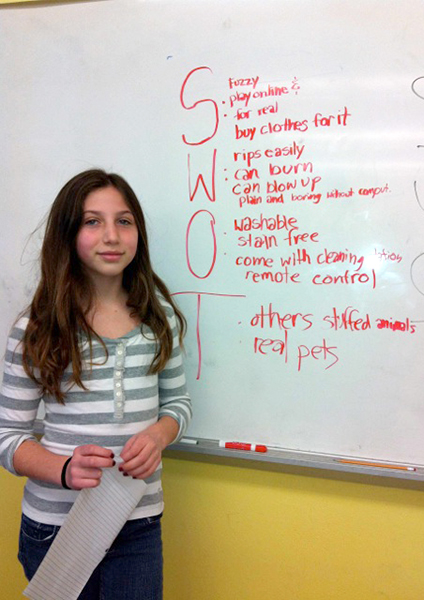 S
Fuzzy
· play online &
· for real
buy clothes for it
W
rips easily
· can burn
can blow up
plain and boring without comput.
O
· washable
stain free
· come with cleaning lotion
remote control
T
· others stuffed animals
· real pets